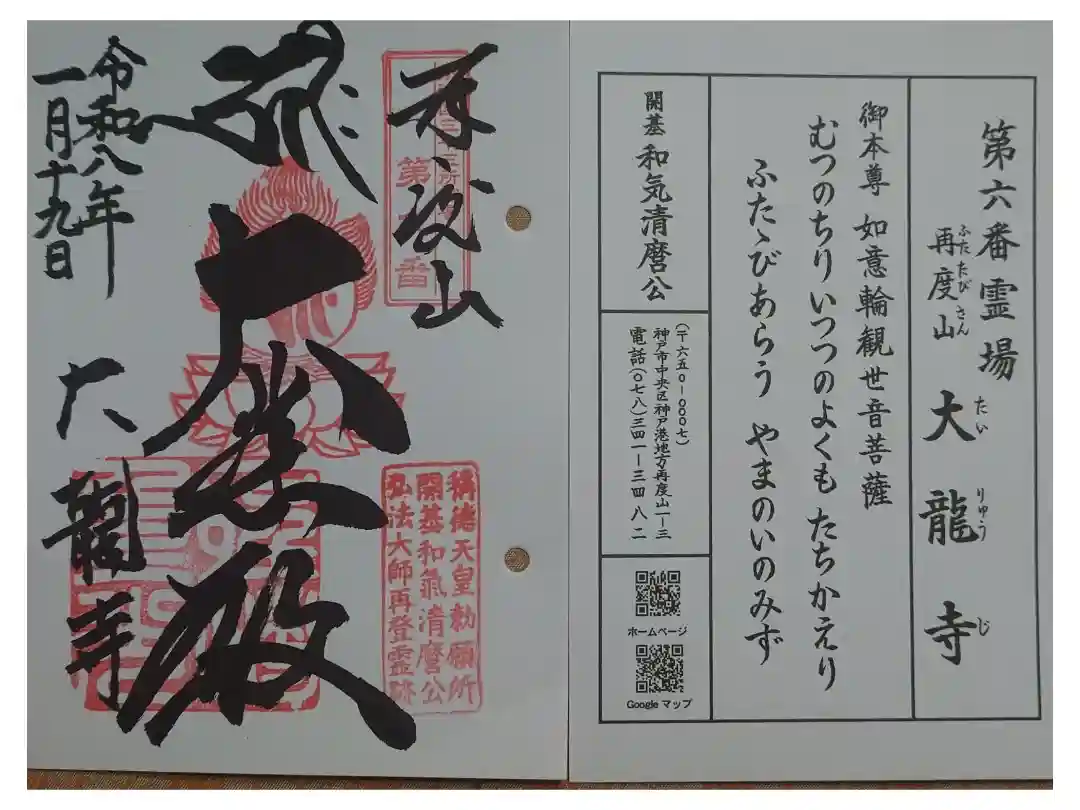 再度山
大悲殿
大龍寺
令和八年
一月十九日
稱德天皇勅願所
開基和氣清麿公
弘法大師再登霊跡
第六番霊場
再度山 大龍寺
ふたたび さん たい りゅう じ
御本尊 如意輪観世音菩薩
むつのちりいつつのよくもたちかえり
ふたゝびあらう やまのいのみず
開基 和気清麿公
(〒六五〇ー〇〇〇七)
神戸市中央区神戸港地方再度山一ー三
電話(〇七八)三四一ー三四八二
ホームページ
Google マップ